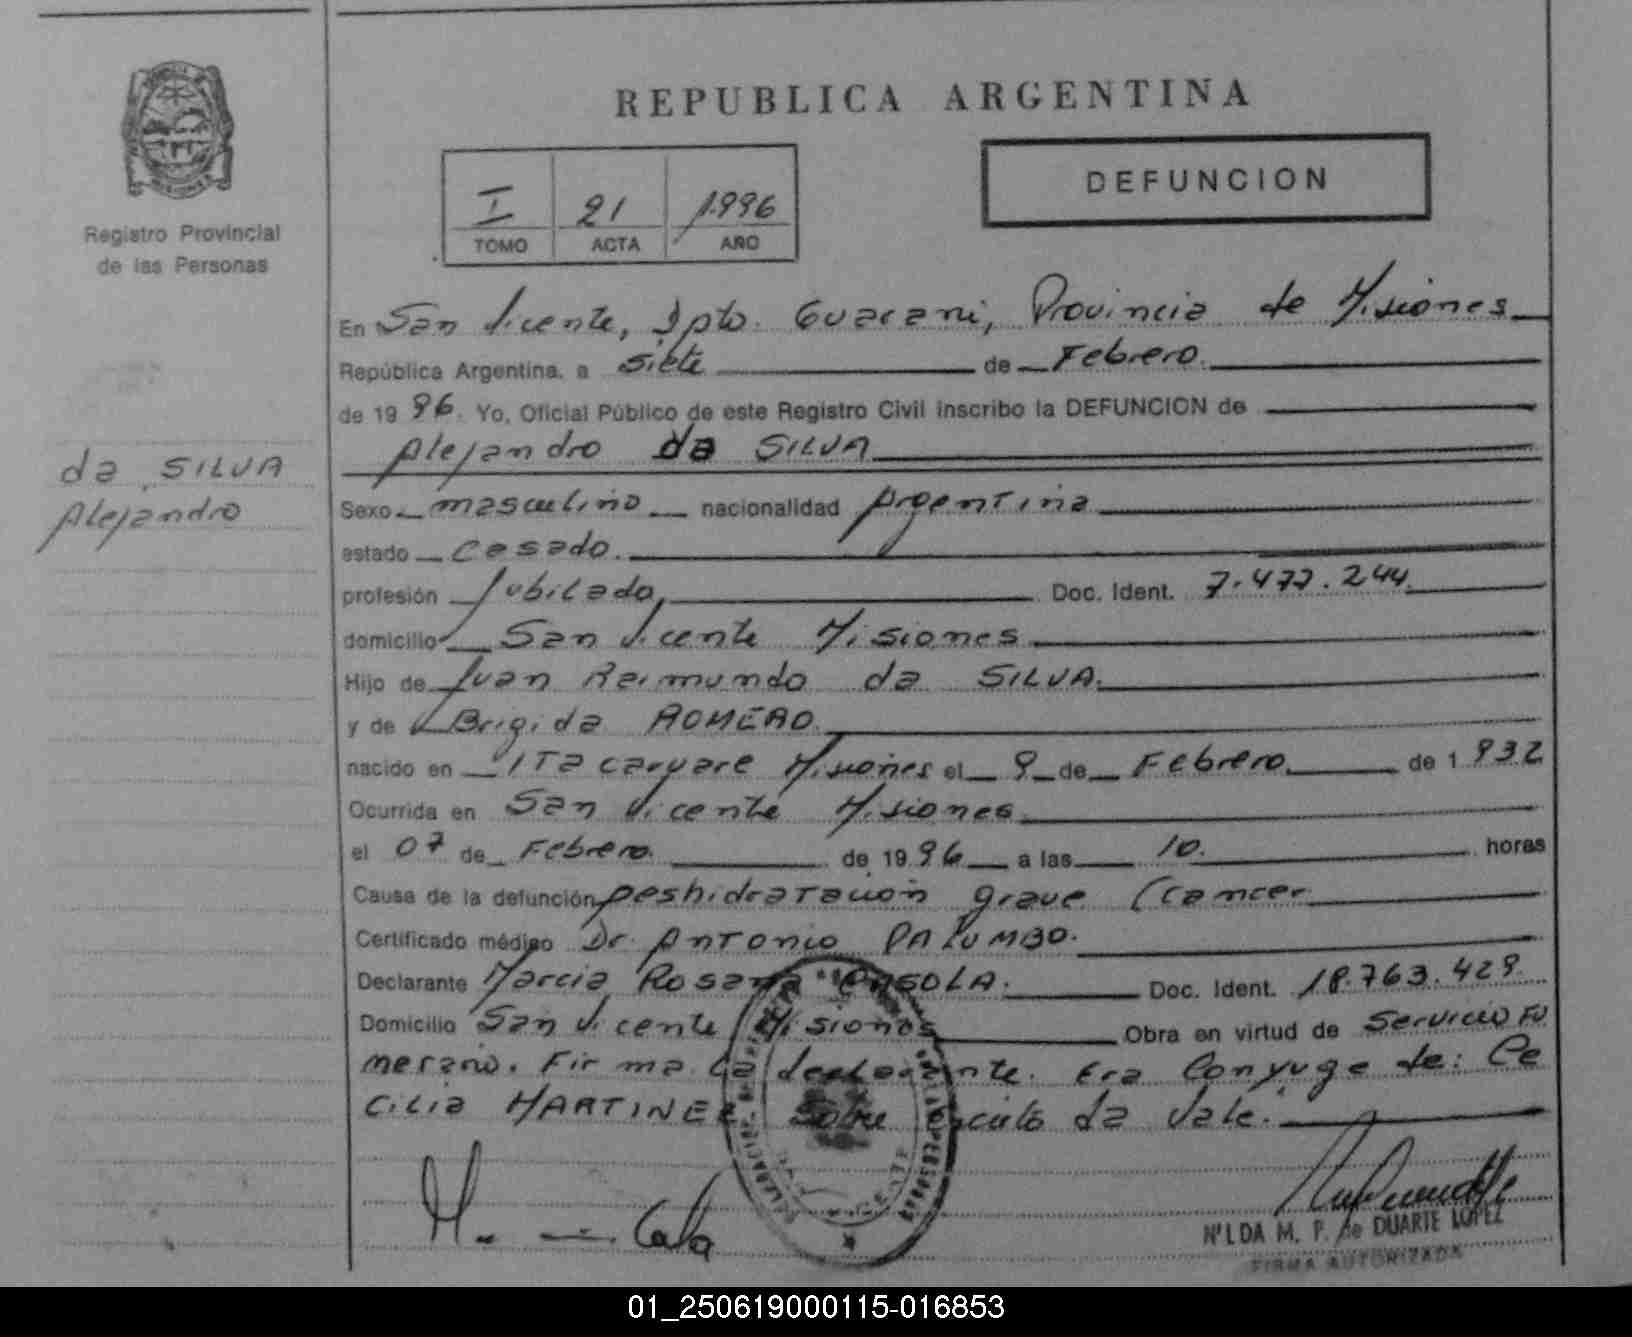 REPUBLICA ARGENTINA
DEFUNCION
I 21 1996
TOMO ACTA AÑO
Registro Provincial
de las Personas
da SILVA
Alejandro
En San Vicente, Dpto. Guarani, Provincia de Misiones
República Argentina, a siete de Febrero.
de 19 96. Yo, Oficial Público de este Registro Civil inscribo la DEFUNCION de
Alejandro da SILVA
Sexo masculino nacionalidad Argentina
estado Casado.
profesión Jubilado, Doc. Ident. 7.477.244
domicilio San Vicente Misiones
Hijo de Juan Reimundo da SILVA.
y de Brigida ROMERO.
nacido en ITacaruare Misiones el 9 de Febrero de 1 932
Ocurrida en San Vicente Misiones
el 07 de Febrero. de 19 96 a las 10. horas
Causa de la defunción Deshidratación grave (cancer
Certificado médico Dr. Antonio PALUMBO.
Declarante Marcia Rosana Doc. Ident. 18.763.429
Domicilio San Vicente Misiones Obra en virtud de Servicio Fu
nerario. Firma la declarante. Era Conyuge de: Ce
cilia MARTINEZ Sobre da Vale.
NILDA M. P. de DUARTE LOPEZ
FIRMA AUTORIZADA
01_250619000115-016853